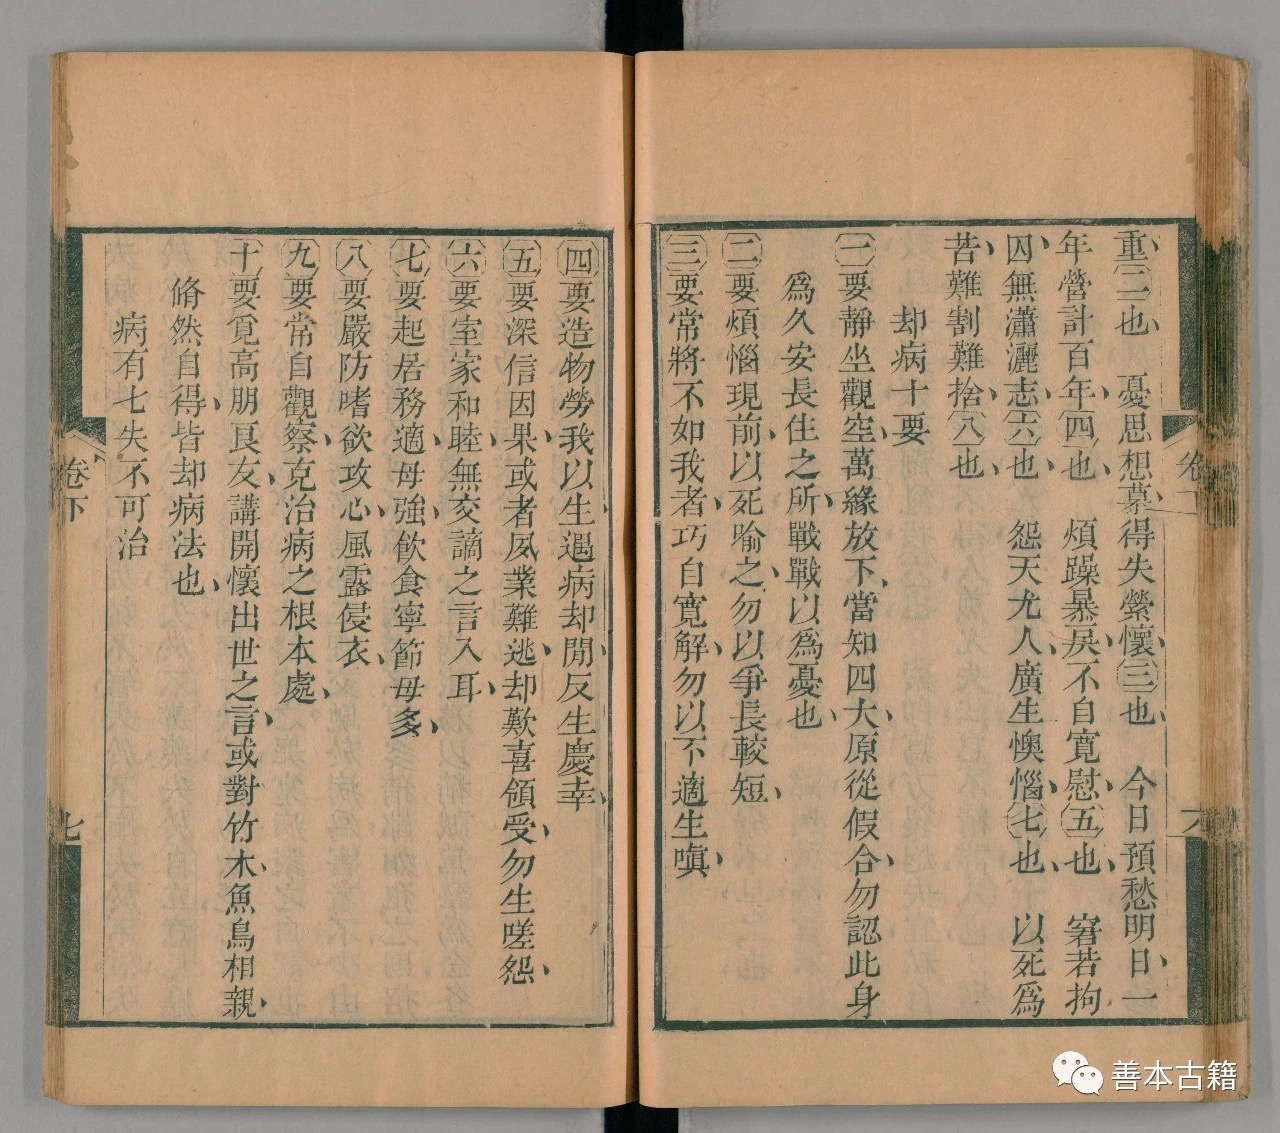 重二也　憂思想慕得失縈懷三也　今日預愁明日一
年營計百年四也　煩躁暴戾不自寬慰五也　窘若拘
囚無瀟灑志六也　怨天尤人廣生懊惱七也　以死爲
苦難割難捨八也
却病十要
一要靜坐觀空萬緣放下當知四大原從假合勿認此身
爲久安長住之所戰戰以爲憂也
二要煩惱現前以死喻之勿以爭長較短
三要常將不如我者巧自寬解勿以不適生嗔
四要造物勞我以生遇病却閒反生慶幸
五要深信因果或者夙業難逃却歎喜領受勿生嗟怨
六要室家和睦無交謫之言入耳
七要起居務適毋強飲食寧節毋多
八要嚴防嗜欲攻心風露侵衣
九要常自觀察克治病之根本處
十要覓高朋良友講開懷出世之言或對竹木魚鳥相親
翛然自得皆却病法也
病有七失不可治
卷下
七
卷下
六
善本古籍